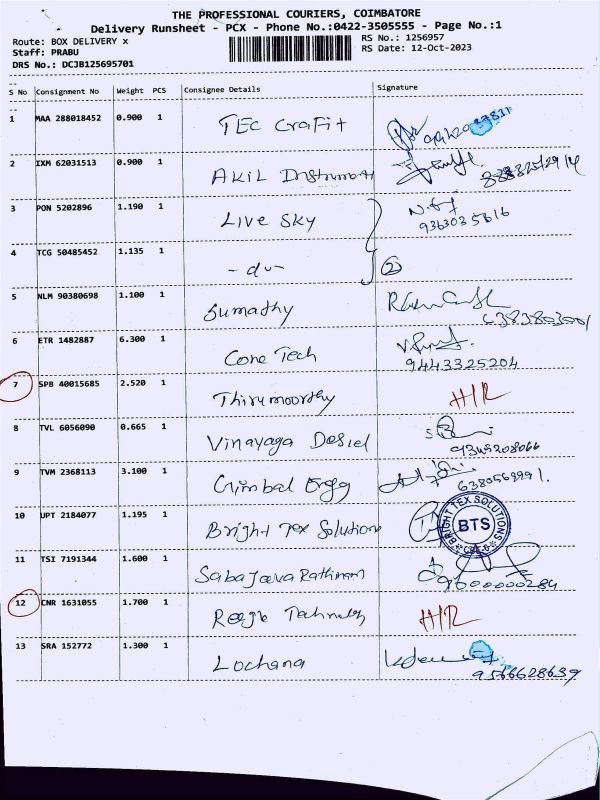 THE PROFESSIONAL COURIERS, COIMBATORE
Delivery Runsheet - PCX - Phone No.:0422-3505555 - Page No.:1
Route: BOX DELIVERY x
RS No.: 1256957
Staff: PRABU
RS Date: 12-Oct-2023
DRS No.: DCJB125695701
S No Consignment No Weight PCS Consignee Details Signature
1 MAA 288018452 0.900 1 TEC CraFit
2 IXM 62031513 0.900 1 AKIL Instrument
3 PON 5202896 1.190 1 LIVE SKY
9363035616
4 TCG 50485452 1.135 1 - do - 2
5 NLM 90380698 1.100 1 Sumathy
6383803001
6 ETR 1482887 6.300 1 Cone Tech
9443325204
7 SPB 40015685 2.520 1 Thirumoorthy H/R
8 TVL 6056090 0.665 1 Vinayaga Desiel
9345208066
9 TVM 2368113 3.100 1 Gimbal Engg
10 UPT 2184077 1.195 1 Bright Tex Solutions BRIGHT TEX SOLUTIONS BTS
11 TSI 7191344 1.600 1
9600000284
12 CNR 1631055 1.700 1 H/R
13 SRA 152772 1.300 1 Lochana
9566628639